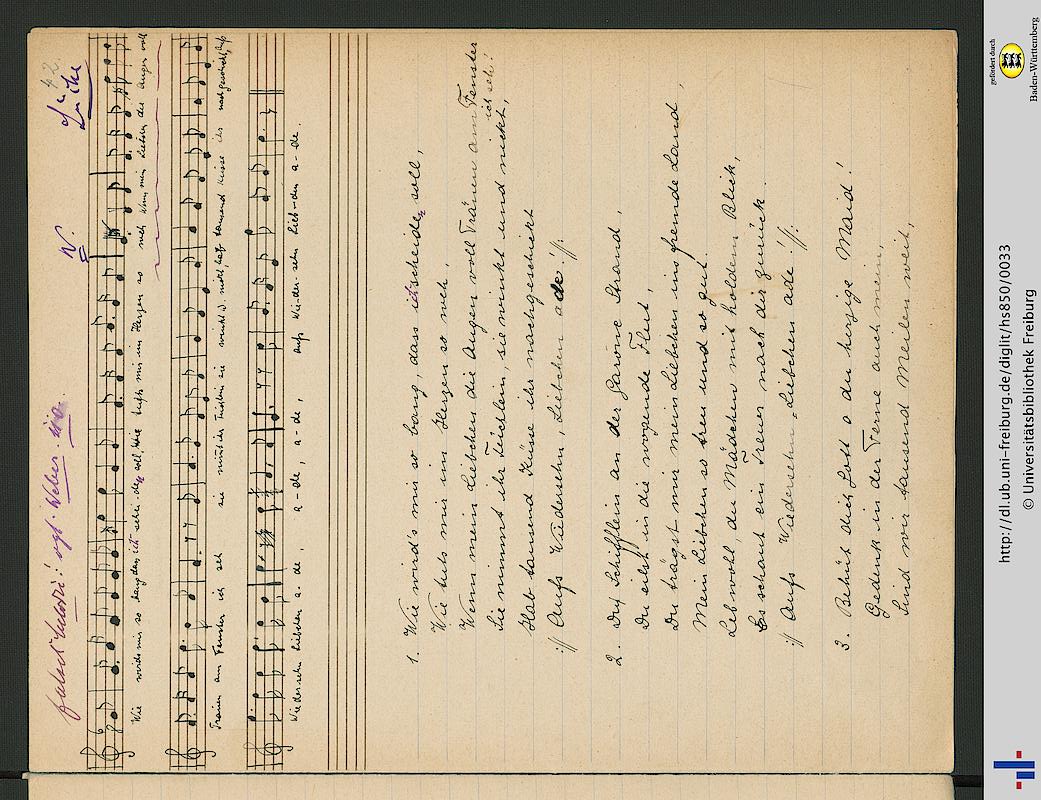 falsch
vgl. Weber
N.
42.
Wie wirds mir so bang das ich schei-den soll, Wie tuts mir im Herzen so weh Wenn mein Liebchen die Augen voll
Tränen am Fenster, ich seh sie nimmt ihr Tüchlein sie winkt u. nickt, hab tausend Küsse ihr nachgeschickt, aufs
Wiedersehn Liebchen a-de, a-de, a-de, aufs Wie-der-sehn Lieb-chen a-de.
1. Wie wird's mir so bang, dass ich scheiden soll,
Wie tuts mir im Herzen so weh,
Wenn mein Liebchen die Augen voll Tränen am Fenster
ich seh!
Sie nimmt ihr Tüchlein, sie winkt und nickt,
Hab tausend Küsse ihr nachgeschickt
:// Aufs Wiedersehn, Liebchen ade ://:
2. Du Schifflein an der Garone Strand,
Du eilst in die wogende Flut,
Du trägst mir mein Liebchen ins fremde Land,
Mein Liebchen so treu und so gut.
Leb wohl, du Mädchen mit holdem Blick,
Es schaut ein Treuer nach dir zurück.
:// Aufs Wiedersehn, Liebchen ade! ://:
3. Behüt dich Gott o du herzige Maid!
Gedenk in der Ferne auch mein,
Sind wir tausend Meilen weit,
gefördert durch
Baden-Württemberg
http://dl.ub.uni-freiburg.de/diglit/hs850/0033
© Universitätsbibliothek Freiburg